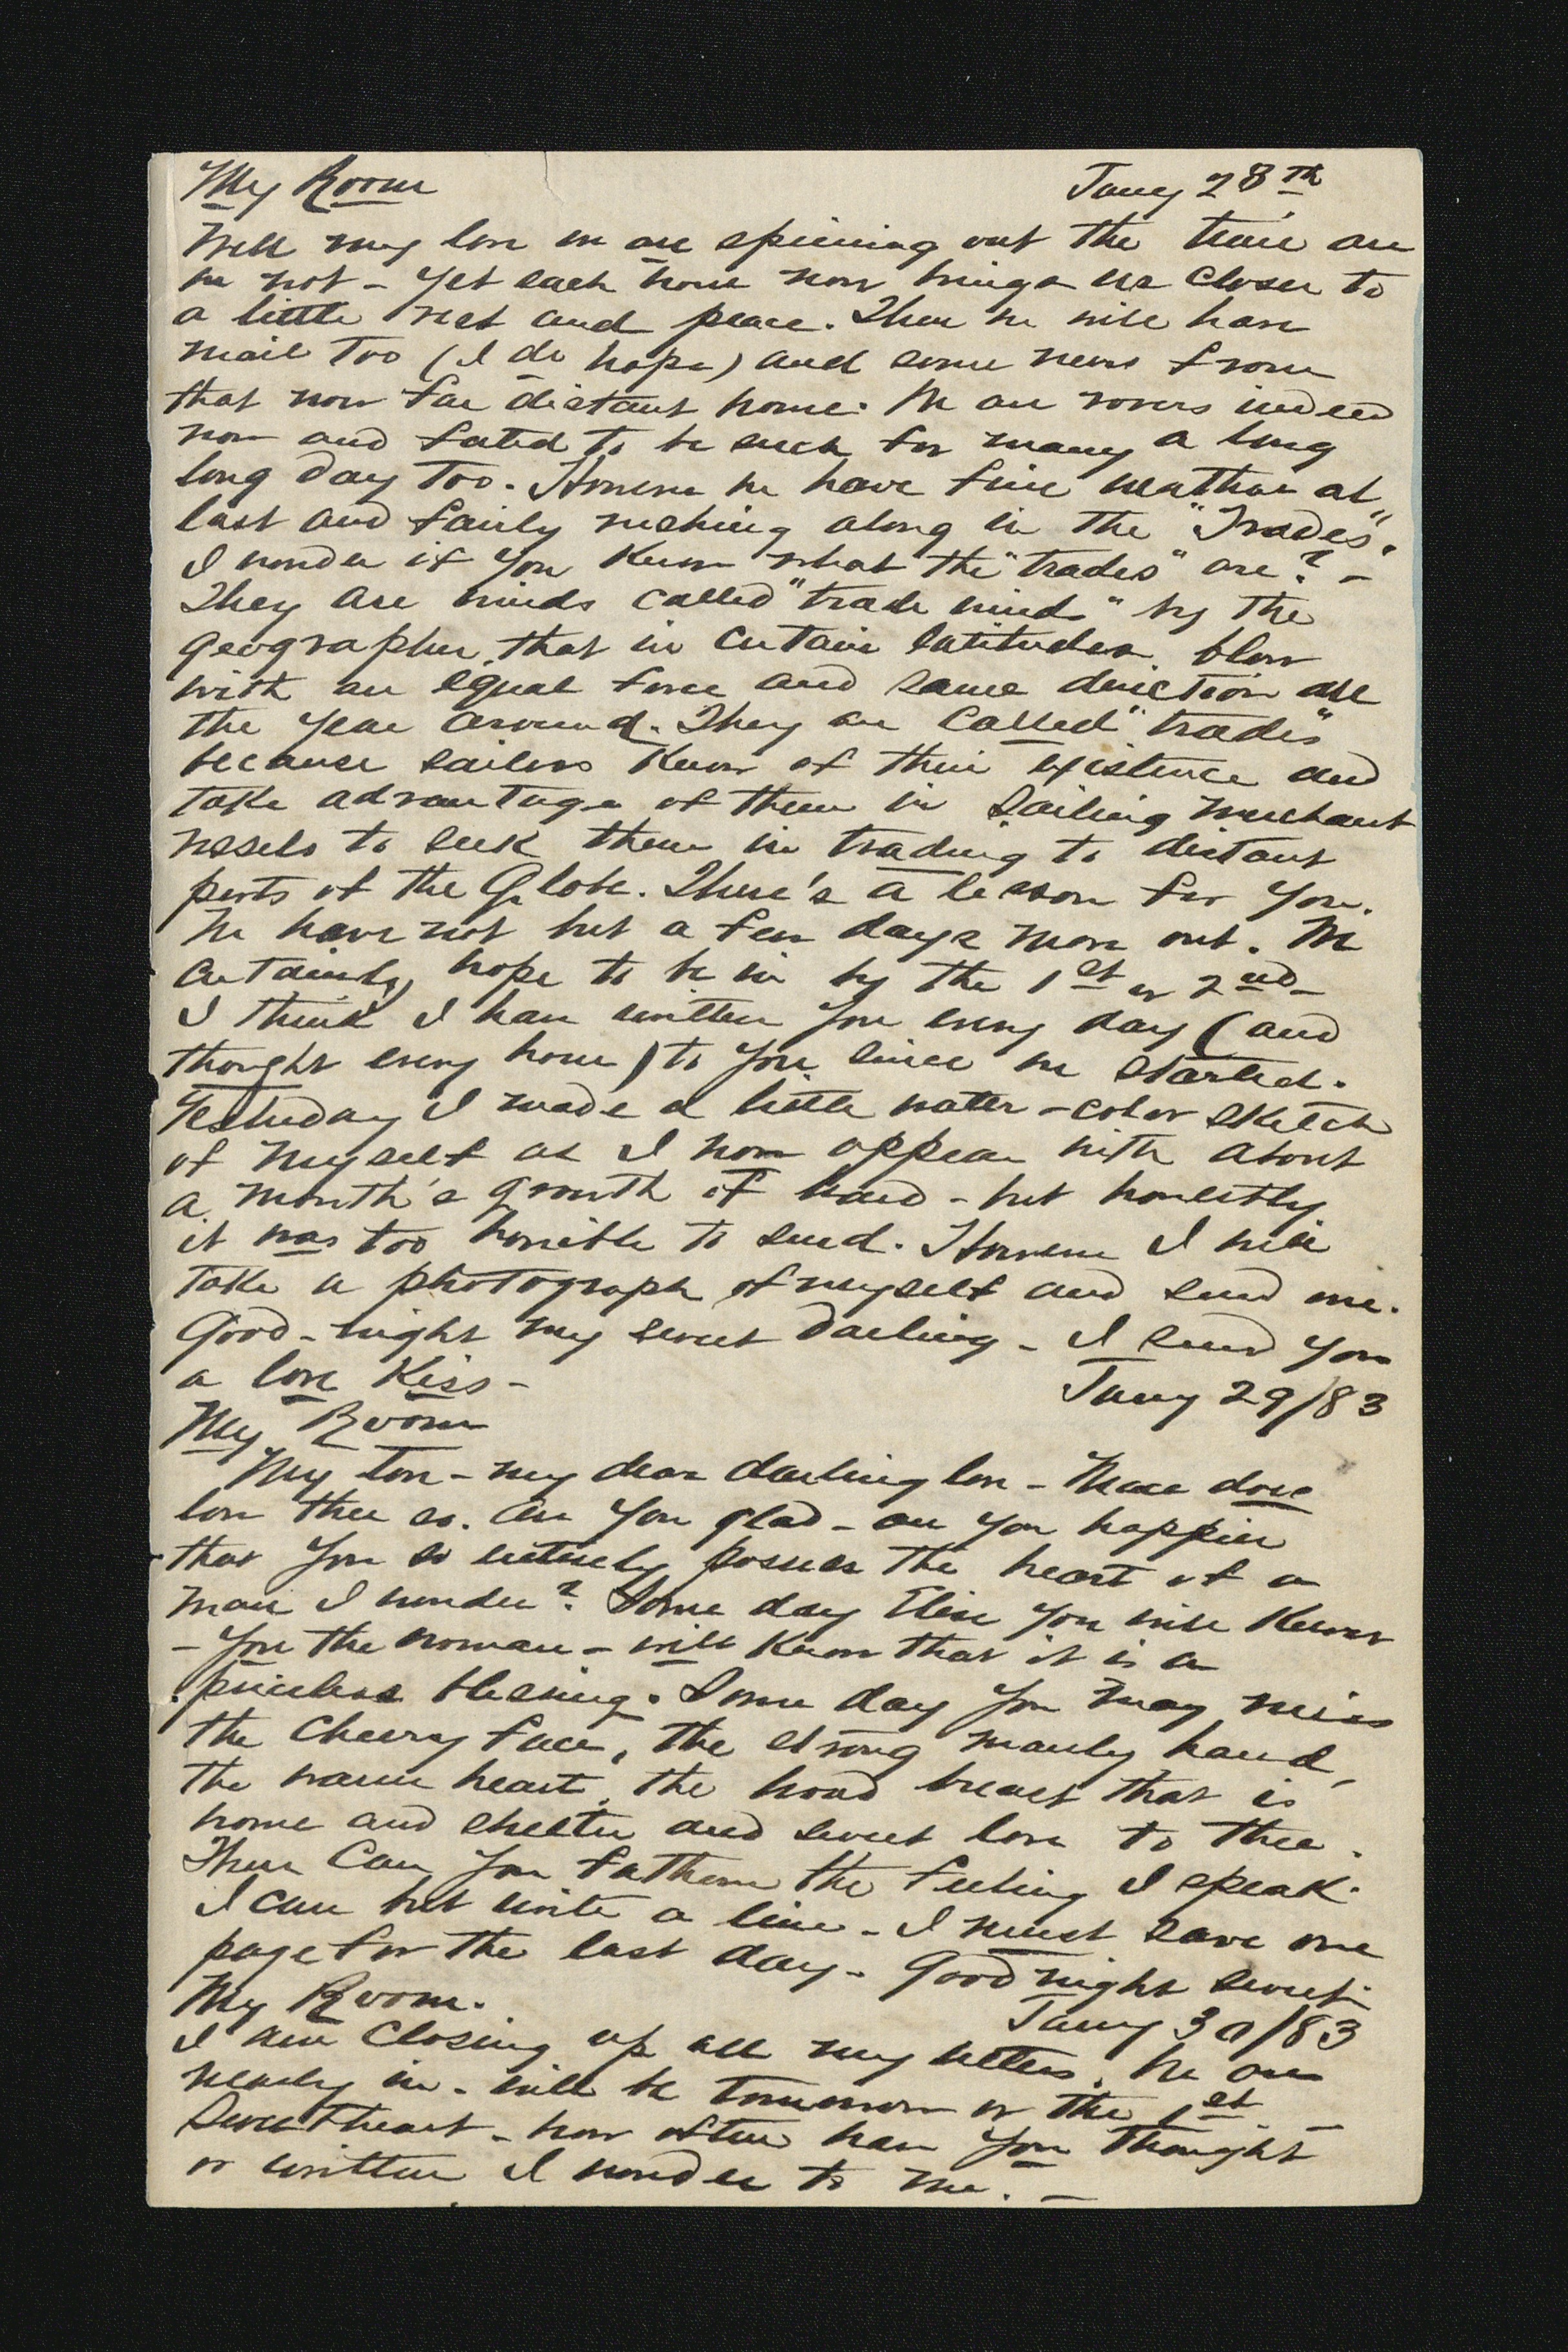 My Room Jany 28th
Well my love we are spinning out the time are
we not - yet each hour now brings us closer to
a little rest and peace. Then we will have
mail too (I do hope) and some news from
that now far distant home. We are rovers indeed
now and fated to be such for many a long
long day too. However we have fine weather at
last and fairly rushing along in the "Trades".
I wonder if you know what the "trades" are? -
They are winds called "trade winds" by the
geographer, that in certain latitudes blow
with an equal force and same direction all
the year around. They are called "trades"
because sailors know of their existence and
take advantage of them in sailing merchant
vessels to seek them in trading to distant
parts of the Globe. There's a lesson for you.
We have not but a few days more out. We
certainly hope to be in by the 1st or 2nd -
I think I have written you every day (and
thought every hour) to you since we started.
Yesterday I made a little water-color sketch
of myself as I now appear with about
a month's growth of beard - but honestly
it was too horrible to send. However I will
take a photograph of myself and send one.
Good-night my sweet darling - I send you
a love kiss -
Jany 29/83
My Room
My love - my dear darling love - Mace does
love thee so. Are you glad - are you happier
that you so entirely possess the heart of a
man I wonder? Some day Elise you will know
- you the woman - will know that it is a
priceless blessing. Some day you may miss
the cheery face, the strong manly hand,
the warm heart, the broad breast that is
home and shelter and sweet love to thee.
Then can you fathom the feeling I speak.
I can but write a line - I must save one
page for the last day - Good night sweet -
My Room. Jany 30/83
I am closing up all my letters. We are
nearly in - will be tomorrow or the 1st -
Sweetheart - how often have you thought
or written I wonder to me. -